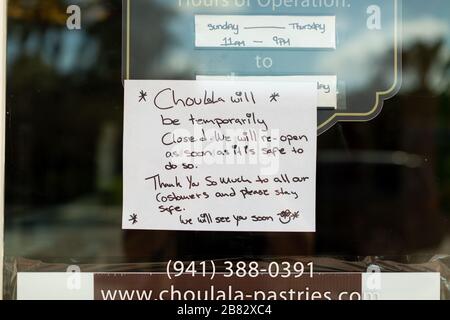 Hours of Operation:
Sunday — Thursday
11AM — 9PM
to
day
* Choulala will *
be temporarily
Closed. We will re-open
as soon as it is safe to
do so.
Thank You So Much to all our
Costumers and please stay
safe.
* We will see you soon *
(941) 388-0391
www.choulala-pastries.com
a alamy
alamy
Image ID: 2B82XC4
www.alamy.com